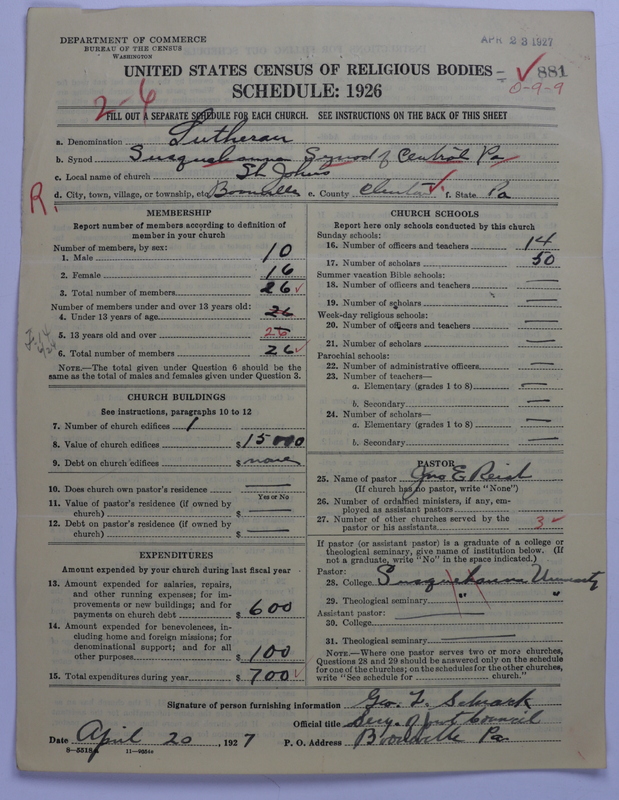 DEPARTMENT OF COMMERCE
BUREAU OF THE CENSUS
WASHINGTON
APR 23 1927
UNITED STATES CENSUS OF RELIGIOUS BODIES
881
SCHEDULE: 1926
0-9-9
2-6
FILL OUT A SEPARATE SCHEDULE FOR EACH CHURCH. SEE INSTRUCTIONS ON THE BACK OF THIS SHEET
a. Denomination Lutheran
b. Synod Susquehanna Synod of Central Pa
c. Local name of church St Johns
R.
d. City, town, village, or township, etc. Booneville e. County Clinton f. State Pa
MEMBERSHIP
Report number of members according to definition of
member in your church
Number of members, by sex:
1. Male 10
2. Female 16
3. Total number of members 26
Number of members under and over 13 years old:
4. Under 13 years of age 26
5. 13 years old and over 26
6. Total number of members 26
NOTE.—The total given under Question 6 should be
same as the total of males and females given under Question 3.
CHURCH BUILDINGS
See instructions, paragraphs 10 to 12
7. Number of church edifices 1
8. Value of church edifices $15000
9. Debt on church edifices $ none
10. Does church own pastor's residence —
Yes or No
11. Value of pastor's residence (if owned by
church) $ —
12. Debt on pastor's residence (if owned by
church) $ —
EXPENDITURES
Amount expended by your church during last fiscal year
13. Amount expended for salaries, repairs,
and other running expenses; for im-
provements or new buildings; and for
payments on church debt $ 600
14. Amount expended for benevolences, in-
cluding home and foreign missions; for
denominational support; and for all
other purposes $ 100
15. Total expenditures during year $ 700
CHURCH SCHOOLS
Report here only schools conducted by this church
Sunday schools:
16. Number of officers and teachers 14
17. Number of scholars 50
Summer vacation Bible schools:
18. Number of officers and teachers —
19. Number of scholars —
Week-day religious schools:
20. Number of officers and teachers —
21. Number of scholars —
Parochial schools:
22. Number of administrative officers —
23. Number of teachers—
a. Elementary (grades 1 to 8) —
b. Secondary —
24. Number of scholars—
a. Elementary (grades 1 to 8) —
b. Secondary —
PASTOR
25. Name of pastor Jno E Reish
(If church has no pastor, write "None")
26. Number of ordained ministers, if any, em-
ployed as assistant pastors
27. Number of other churches served by the
pastor or his assistants 3
If pastor (or assistant pastor) is a graduate of a college or
theological seminary, give name of institution below. (If
not a graduate, write "No" in the space indicated.)
Pastor:
28. College Susquehanna University
29. Theological seminary " "
Assistant pastor:
30. College
31. Theological seminary
NOTE.—Where one pastor serves two or more churches,
Questions 28 and 29 should be answered only on the schedule
for one of the churches; on the schedules for the other churches,
write "See schedule for church."
Signature of person furnishing information Geo. L. Schrack
Official title Secy. of Council
Date April 20, 1927 P. O. Address Booneville Pa
8-5518A 11-9354e